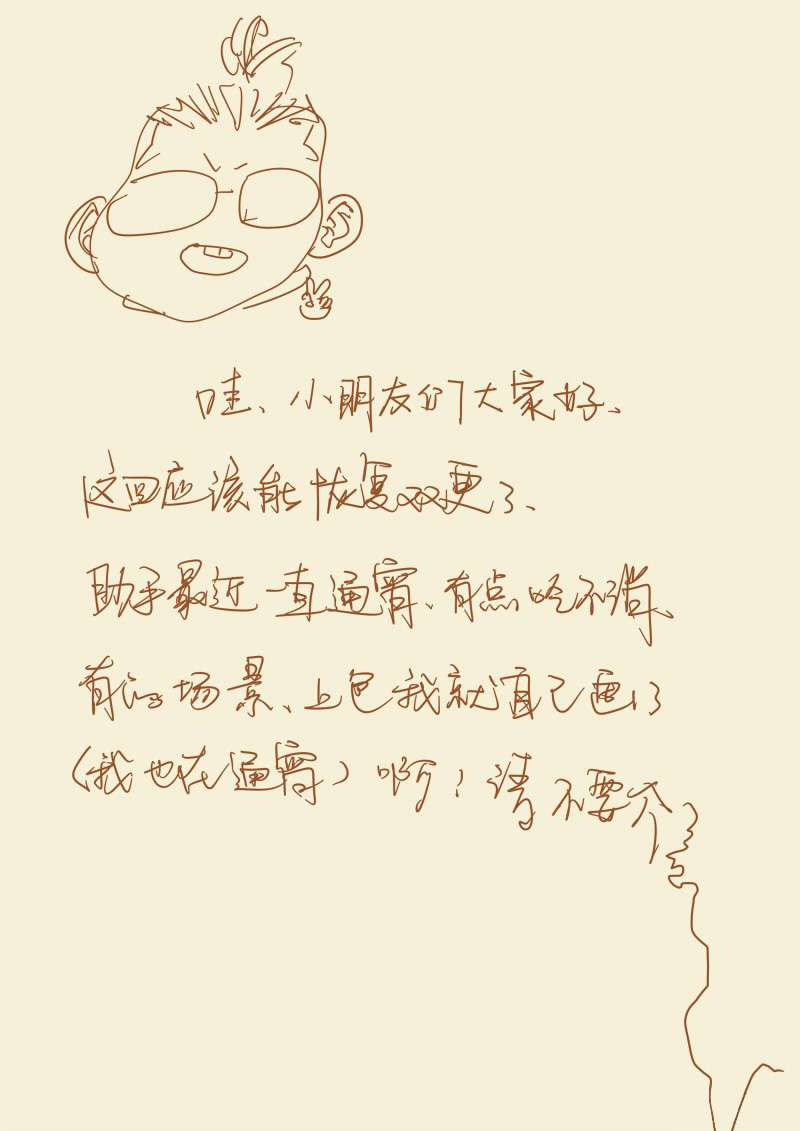 哇、小朋友们大家好、
这回应该能恢复双更了、
助手最近一直通宵、有点吃不消、
有的场景、上色我就自己画了
（我也在通宵）啊！请不要介